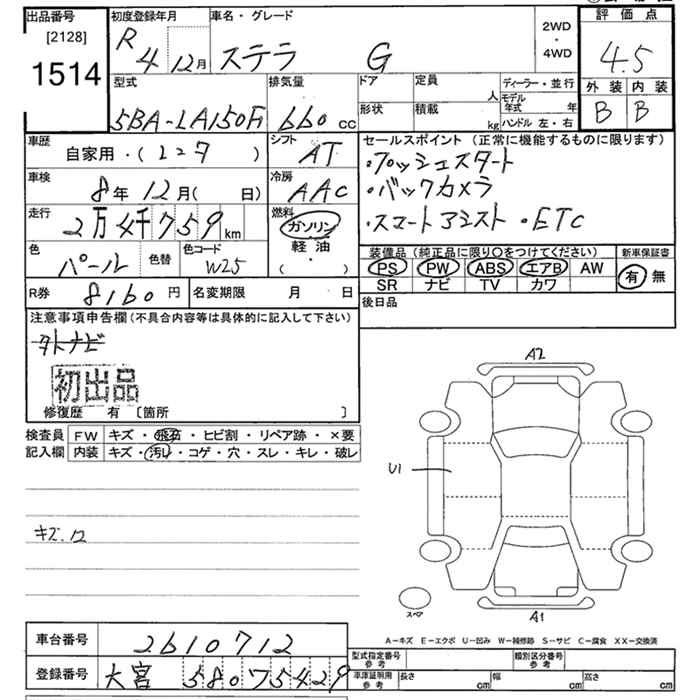 出品番号 初度登録年月 車名・グレード 2WD・4WD 評価点
[2128] R 4 12月 ステラ G 4.5
1514
型式 排気量 ドア 定員 人 ディーラー・並行 外装 内装
5BA-LA150F 660 cc 形状 積載 kg モデル年式 年 B B
ハンドル 左・右
車歴 自家用・( ) シフト AT セールスポイント (正常に機能するものに限ります)
・プッシュスタート
車検 8年 12月( 日) 冷房 AAC ・バックカメラ
走行 2万4千759km 燃料 ガソリン ・スマートアシスト ・ETC
軽油
( ・ )
色 パール 色替 色コード W25 装備品 (純正品に限り○をつけてください) 新車保証書
PS PW ABS エアB AW 有 無
SR ナビ TV カワ
R券 8160円 名変期限 月 日 後日品
注意事項申告欄 (不具合内容等は具体的に記入して下さい)
外ナビ
初出品
修復歴 有 〔箇所 〕
検査員 FW キズ・飛石・ヒビ割・リペア跡・×要
記入欄 内装 キズ・汚レ・コゲ・穴・スレ・キレ・破レ
A2
U1
キズ.12
スペア
A1
A-キズ E-エクボ U-凹み W-補修跡 S-サビ C-腐食 XX-交換済
車台番号 2610712
型式指定番号 参考 類別区分番号 参考
登録番号 大宮 580 7 5429
車庫証明用 参考 長さ cm 幅 cm 高さ cm